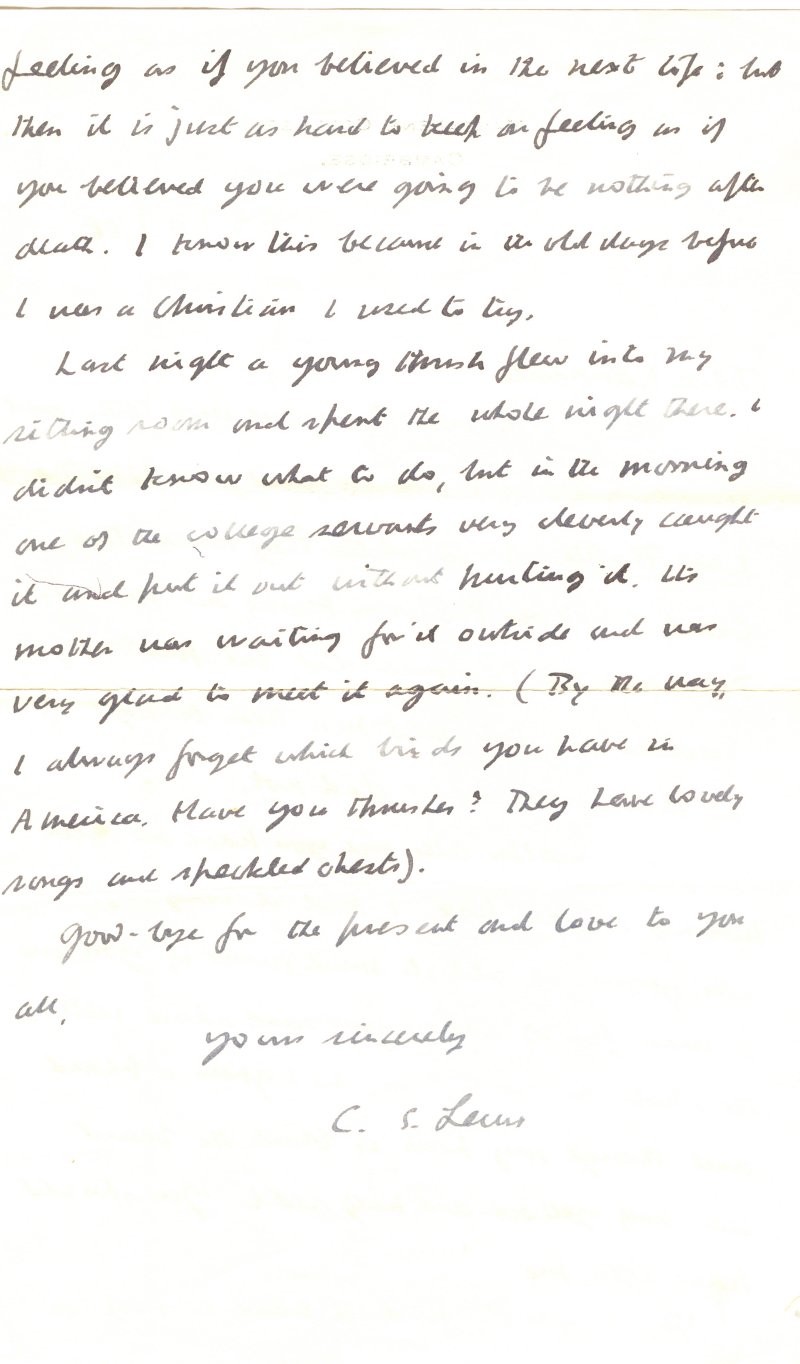 feeling as if you believed in the next life: but
then it is just as hard to keep on feeling as if
you believed you were going to be nothing after
death. I know this because in the old days before
I was a Christian I used to try.
Last night a young thrush flew into my
sitting room and spent the whole night there. I
didn't know what to do, but in the morning
one of the college servants very cleverly caught
it and put it out without hurting it. Its
mother was waiting for it outside and was
very glad to meet it again. (By the way,
I always forget which birds you have in
America. Have you thrushes? They have lovely
songs and speckled chests).
Good-bye for the present and love to you
all.
yours sincerely
C. S. Lewis